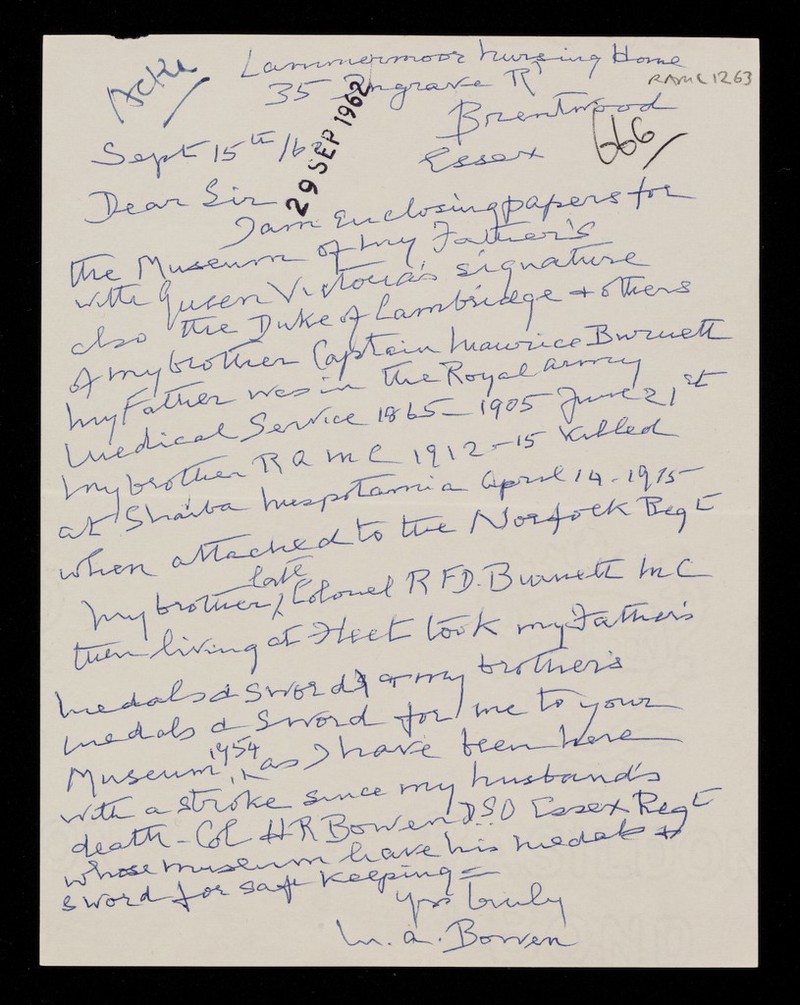 Ackd
Lammermoor Nursing Home
35 Ingrave Rd
RAMC 1263
Brentwood
Essex
666
Sept 15th /62
29 SEP 1962
Dear Sir
I am enclosing papers for
the Museum of my Father's
with Queen Victoria's signature
also the Duke of Cambridge & others
of my brother Captain Maurice Burnett
My Father was in the Royal Army
Medical Service 1865 - 1905 June 21st
My brother R A M C 1912 - 15 Killed
at Shaiba Mespotamia April 14 - 1915
when attached to the Norfolk Regt
My brother, late Colonel R F D. Burnett M C
then living at Fleet took my Father's
medals & sword & my brother's
medals & sword for me to your
Museum, 1954 as I have been here
with a stroke since my husband's
death - Col H R Bowen DSO Essex Regt
whose museum have his medals &
sword for safe keeping =
Yrs truly
M. A. Bowen